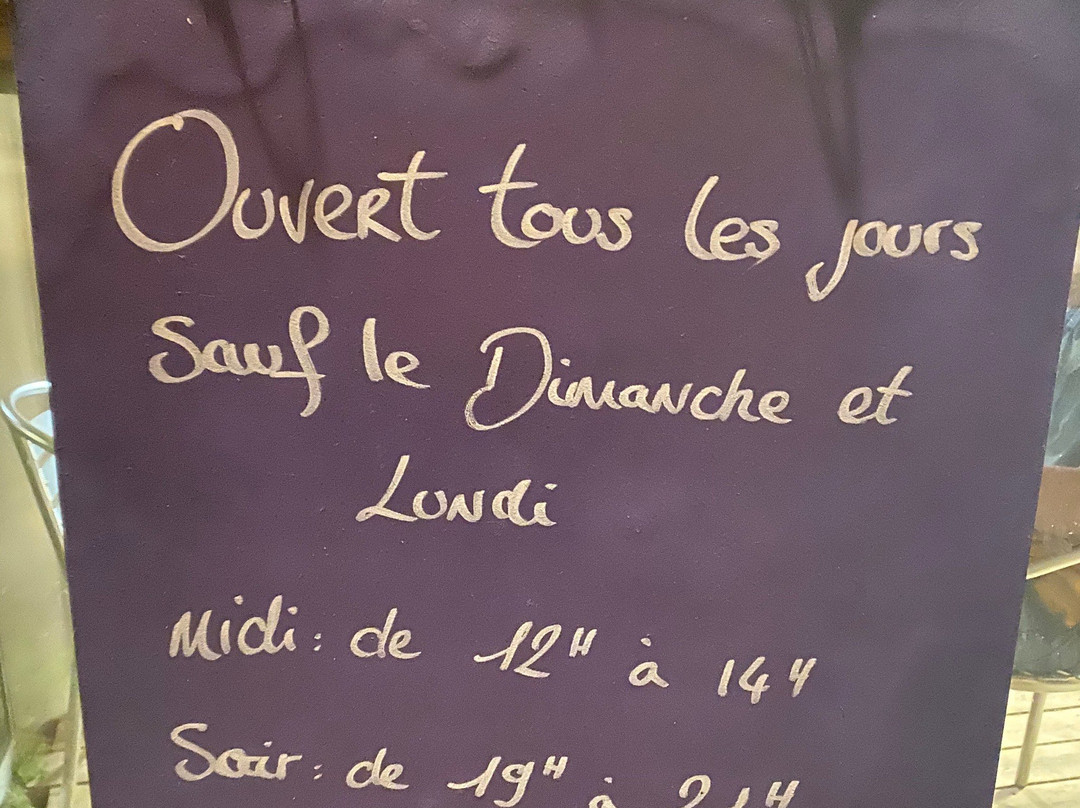 Ouvert tous les jours
Sauf le Dimanche et
Lundi
Midi : de 12H à 14H
Soir : de 19H à 21H